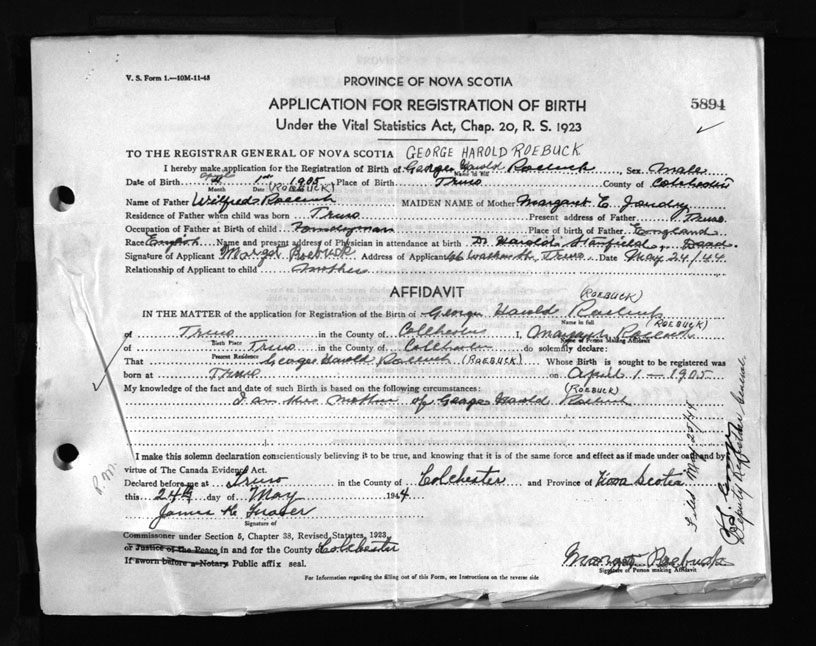 V. S. Form 1.—10M-11-43
PROVINCE OF NOVA SCOTIA
APPLICATION FOR REGISTRATION OF BIRTH
5894
Under the Vital Statistics Act, Chap. 20, R. S. 1923
TO THE REGISTRAR GENERAL OF NOVA SCOTIA GEORGE HAROLD ROEBUCK
I hereby make application for the Registration of Birth of George Harold Roebuck Sex Male
Name in full
Date of Birth April 1st 1905 Place of Birth Truro County of Colchester
Month Date (ROEBUCK)
Name of Father Wilfred Roebuck MAIDEN NAME of Mother Margaret E.
Residence of Father when child was born Truro Present address of Father Truro
Occupation of Father at Birth of child Place of birth of Father England
Race English Name and present address of Physician in attendance at birth Dr. Harold Stanfield, Dead.
Signature of Applicant Margt Roebuck Address of Applicant Truro Date May 24/44
Relationship of Applicant to child Mother
AFFIDAVIT
(ROEBUCK)
IN THE MATTER of the application for Registration of the Birth of George Harold Roebuck
Name in full (ROEBUCK)
of Truro in the County of Colchester I, Margaret Roebuck
Birth Place Name of Person Making Affidavit
of Truro in the County of Colchester do solemnly declare:
Present Residence
That George Harold Roebuck (ROEBUCK) Whose Birth is sought to be registered was
born at Truro on April 1 — 1905
My knowledge of the fact and date of such Birth is based on the following circumstances: (ROEBUCK)
I am the mother of George Harold Roebuck
I make this solemn declaration conscientiously believing it to be true, and knowing that it is of the same force and effect as if made under oath and by
virtue of The Canada Evidence Act.
Declared before me at Truro in the County of Colchester and Province of Nova Scotia
this 24th day of May 1944
James H Fraser
Signature of
Commissioner under Section 5, Chapter 38, Revised Statutes, 1923
or Justice of the Peace in and for the County Colchester
If sworn before a Notary Public affix seal.
Margaret Roebuck
Signature of Person making Affidavit
For Information regarding the filling out of this Form, see Instructions on the reverse side
P.M.
Filed May 25/44
Deputy Registrar General